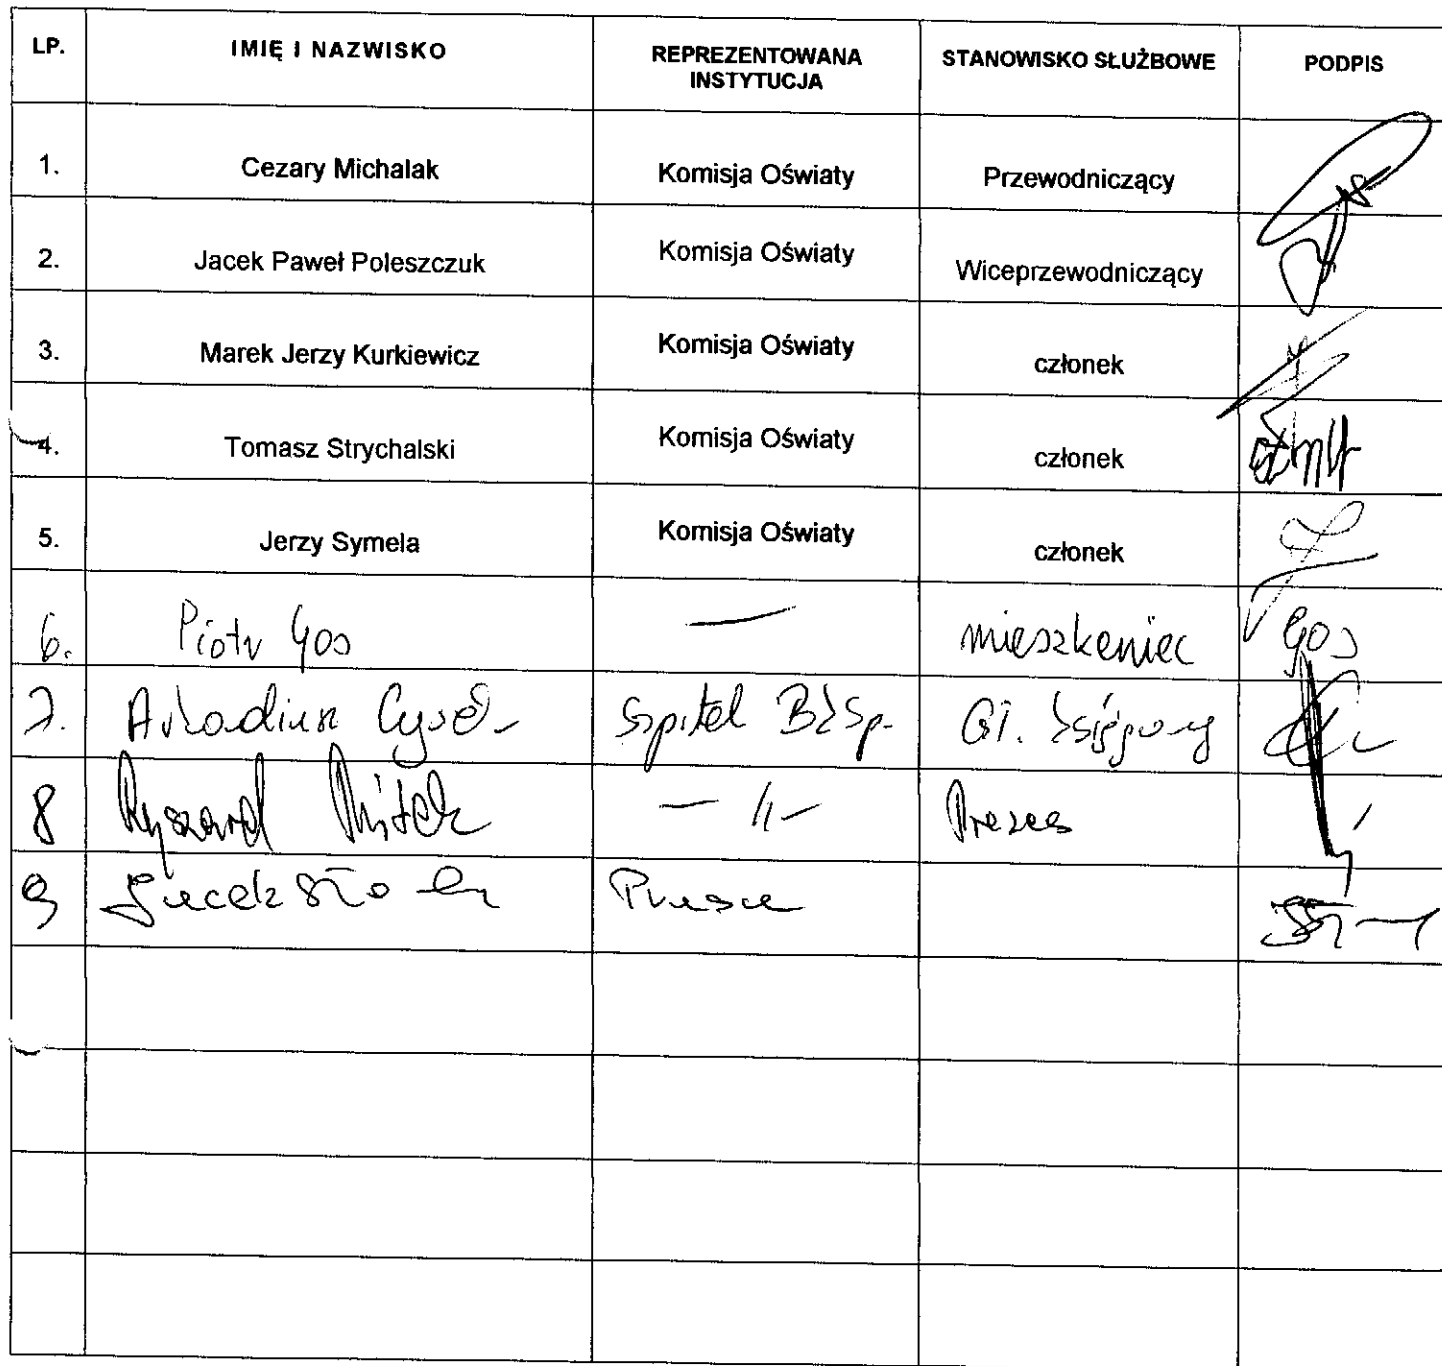 LP. IMIĘ I NAZWISKO REPREZENTOWANA INSTYTUCJA STANOWISKO SŁUŻBOWE PODPIS
1. Cezary Michalak Komisja Oświaty Przewodniczący
2. Jacek Paweł Poleszczuk Komisja Oświaty Wiceprzewodniczący
3. Marek Jerzy Kurkiewicz Komisja Oświaty członek
4. Tomasz Strychalski Komisja Oświaty członek
5. Jerzy Symela Komisja Oświaty członek
6. Piotr Gos — mieszkaniec Gos
7. Arkadiusz Szpital Gł. Księgowy
8 Ryszard — // — Prezes
9 Jacek Prasa